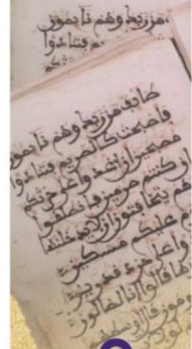 من ربك وهم نايمون
فتنادوا
طايف من ربك وهم نايمون
فاصبحت كالصريم فتنادوا
مصبحين ان اغدوا على حرثكم
ان كنتم صرمين فانطلقوا
وهم يتخفتون ان لا يدخلنها
عليكم مسكين
وغدوا على حرد قدرين
قالوا انا لضالون